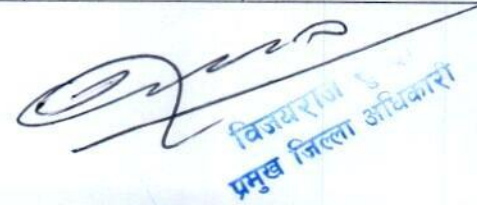 विजयराज
प्रमुख जिल्ला अधिकारी